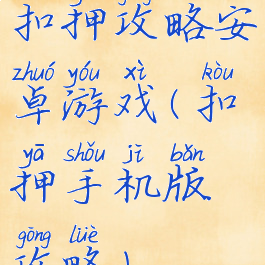 扣押攻略安
zhuó yóu xì kòu
卓游戏(扣
yā shǒu jī bǎn
押手机版
gōng lüè
攻略)